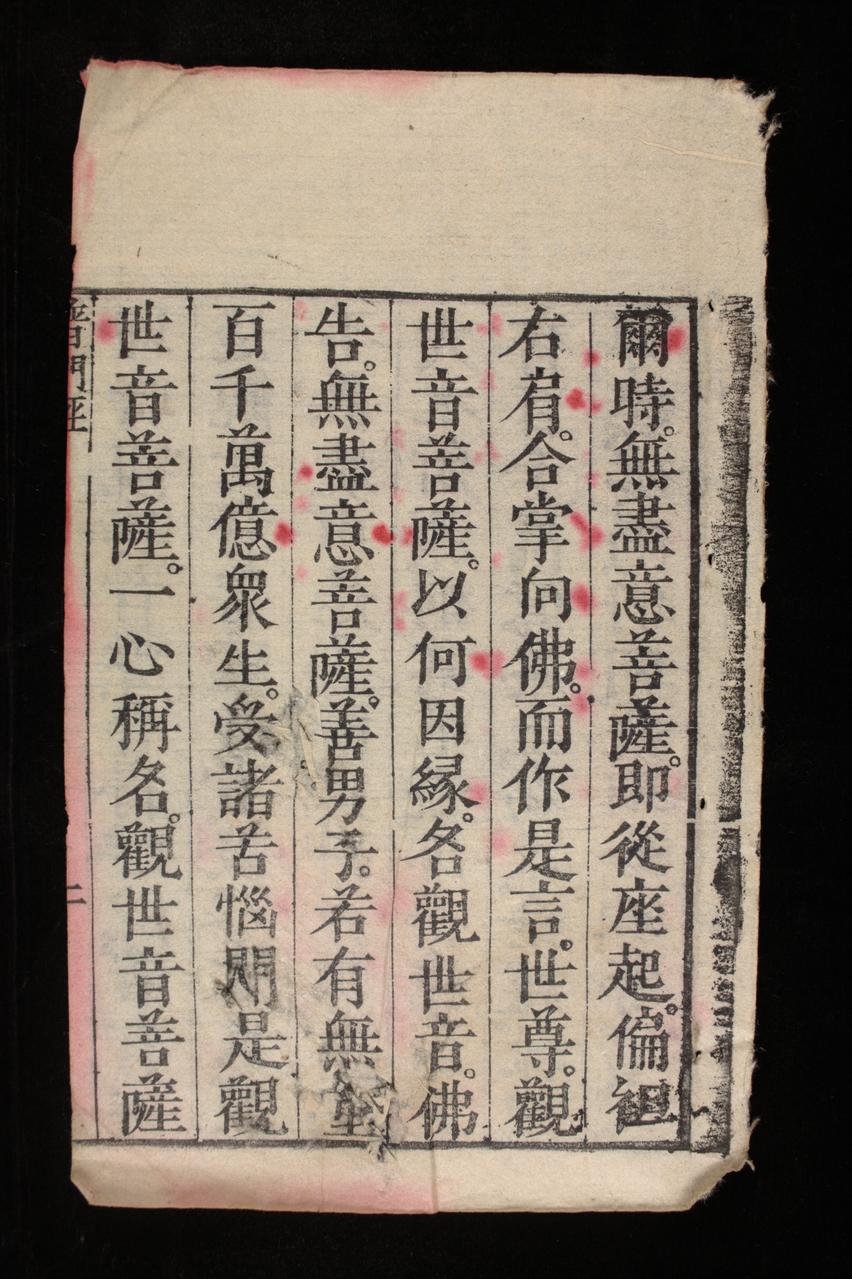 爾時。無盡意菩薩。即從座起。偏袒
右肩。合掌向佛。而作是言。世尊。觀
世音菩薩。以何因緣。名觀世音。佛
告。無盡意菩薩。善男子。若有無量
百千萬億衆生。受諸苦惱聞是觀
世音菩薩。一心稱名。觀世音菩薩
普門經